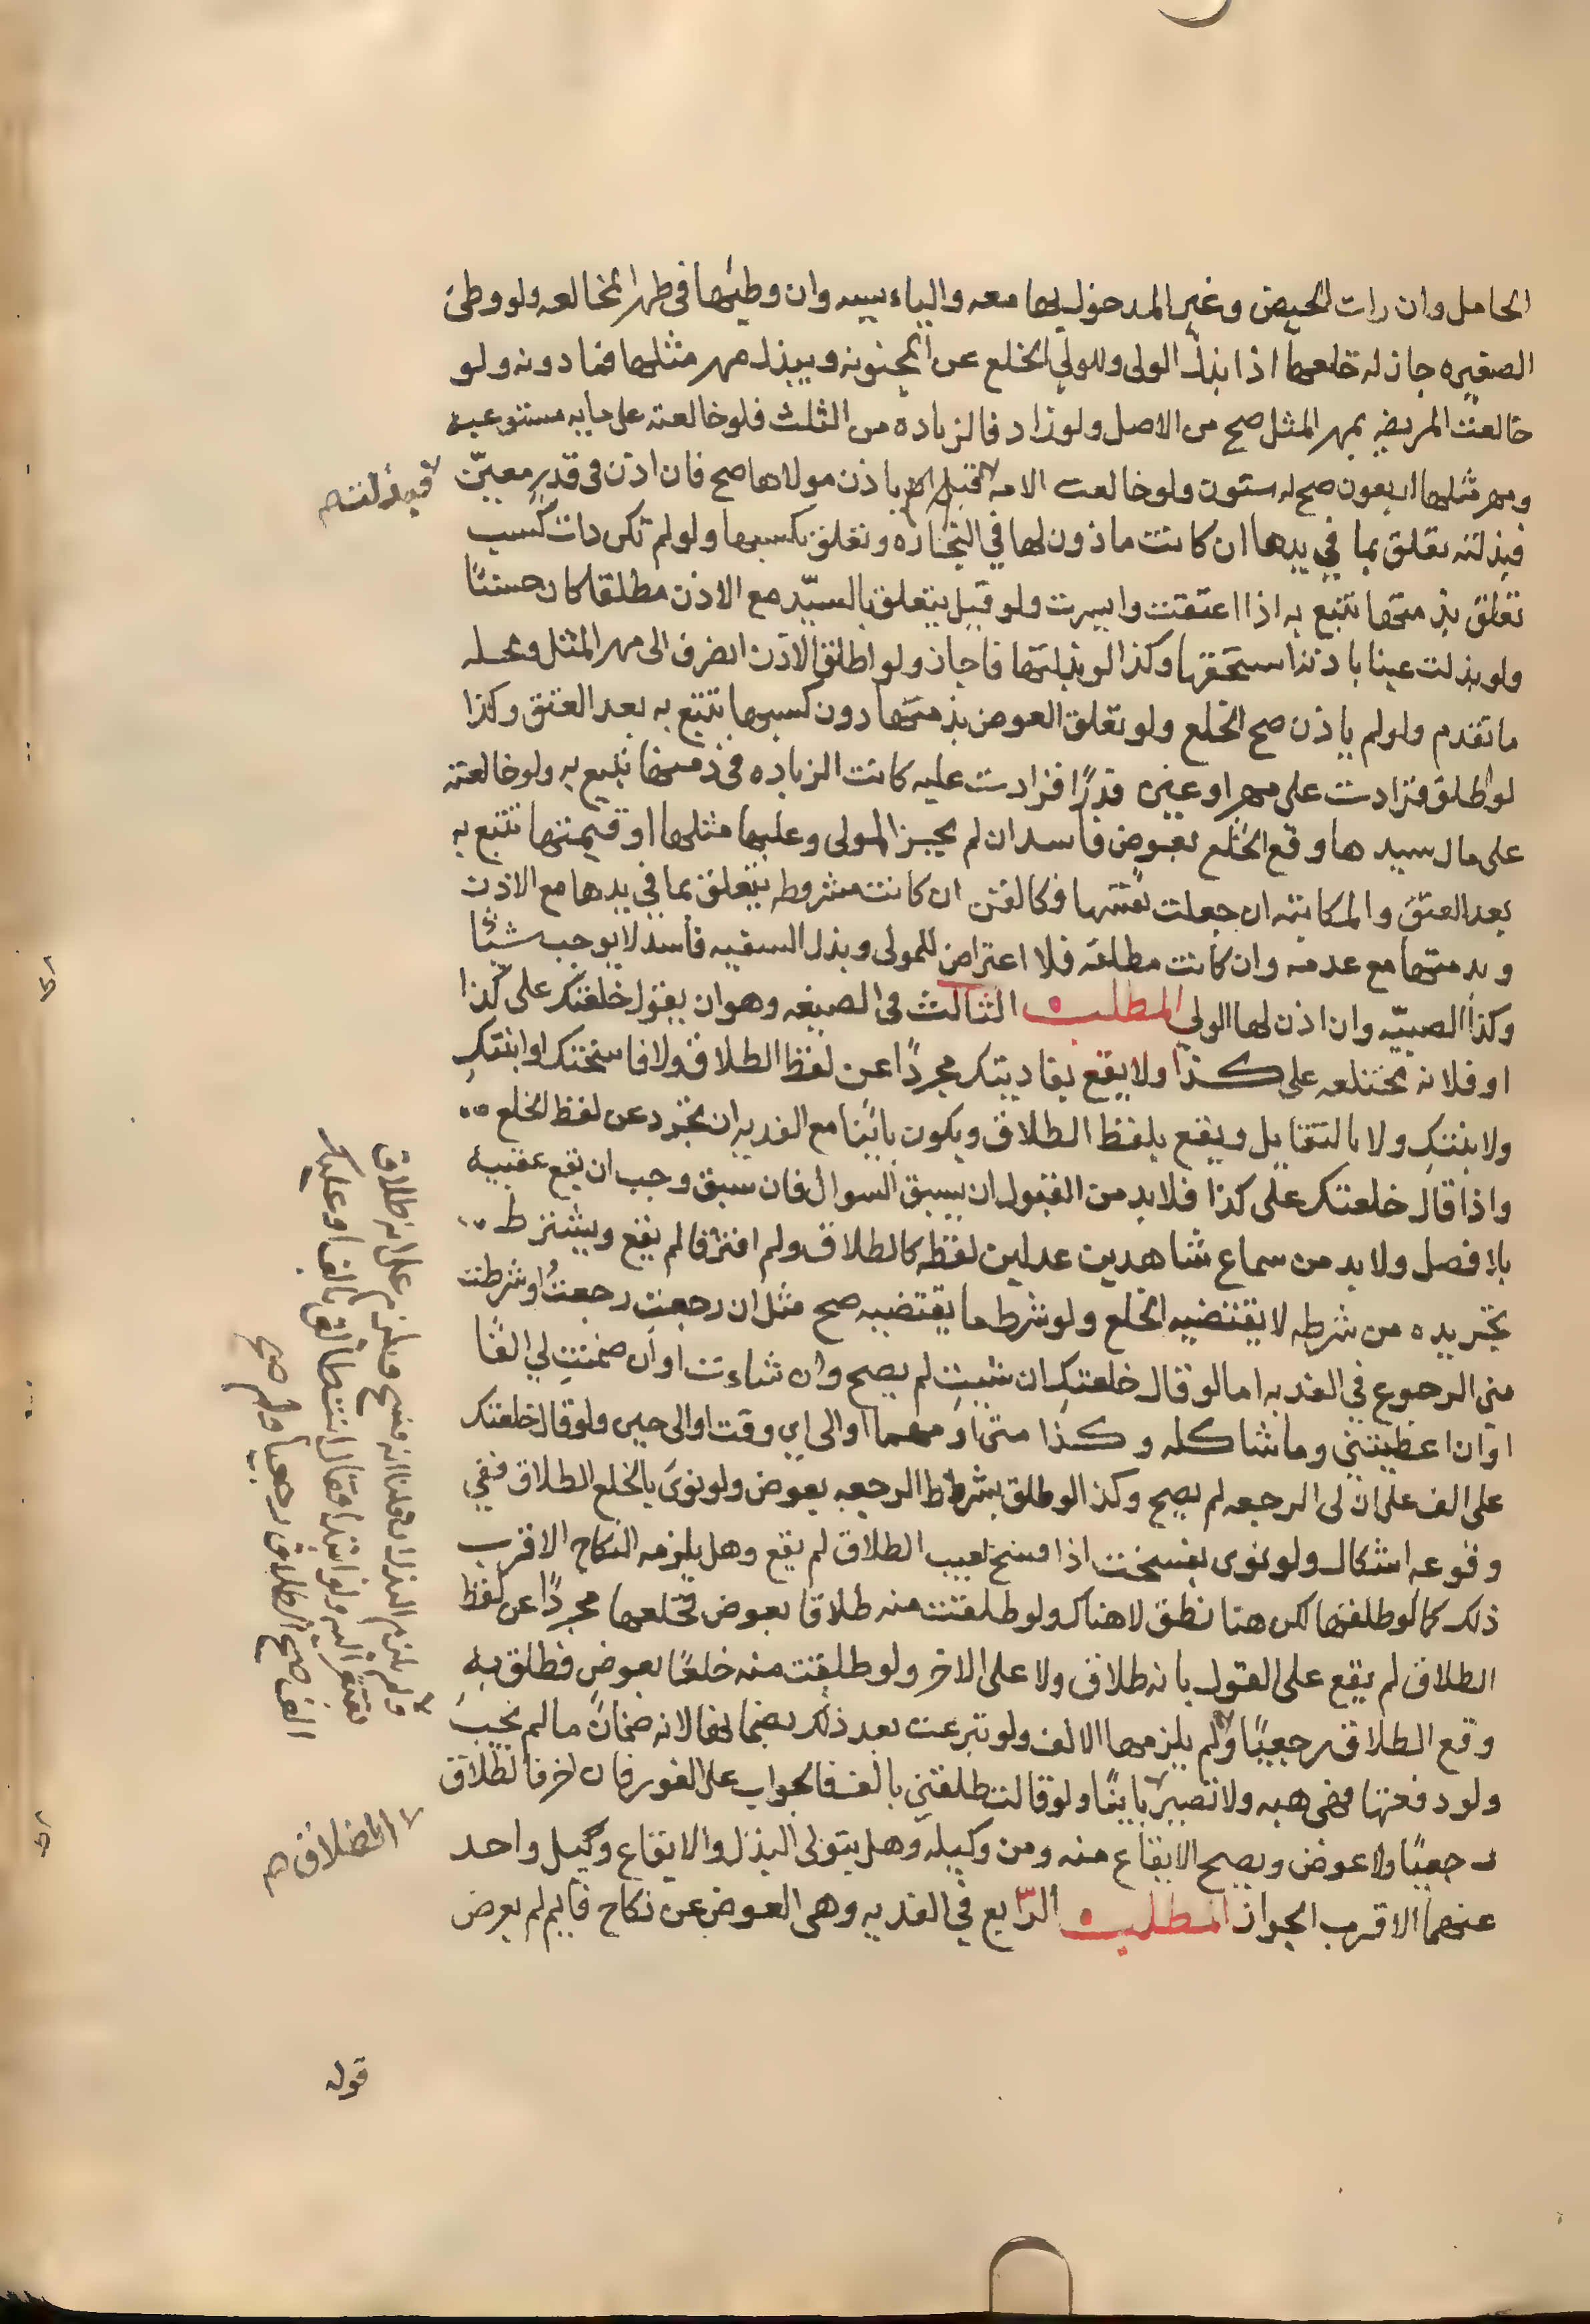 الحامل وان رات الحيض وغير المدخول بها معه واليائسه وان وطئها فى طهر المخالعه ولو وطئ
الصغيره جاز له خلعها اذا بذل الولى وللولي الخلع عن المجنونه ويبذل مهر مثلها فما دونه ولو
خالعت المريضه بمهر المثل صح من الاصل ولو زاد فالزياده من الثلث فلو خالعته على مايه مستوعبه
ومهر مثلها اربعون صح له ستون ولو خالعت الامه باذن مولاها صح فان اذن فى قدر معيّن
فبذلته
فبذلته تعلق بما في يدها ان كانت ماذون لها في التجاره وتعلق بكسبها ولو لم تكن ذات كسب
تعلق بذمتها تتبع به اذا اعتقت وايسرت ولو قيل يتعلق بالسيّد مع الاذن مطلقا كان حسنًا
ولو بذلت عينا باذننا استحقها وكذا لو بذلتها فاجاز ولو اطلق الاذن انصرف الى مهر المثل ومحله
ما تقدم ولو لم ياذن صح الخلع ولو تعلق العوض بذمتها دون كسبها تتبع به بعد العتق وكذا
لو اطلق فزادت على مهر او عين قدرًا فزادت عليه كانت الزياده فى ذمتها تتبع به ولو خالعته
على مال سيدها وقع الخلع بعوض فاسد ان لم يجيز المولى وعليها مثلها او قيمتها تتبع به
بعد العتق والمكاتبه ان جعلت نفسها فكالقن ان كانت مشروطه يتعلق بما في يدها مع الاذن
وبذمتها مع عدمه وان كانت مطلقه فلا اعتراض للمولى وبذل السفيه فاسد لا يوجب شيئًا
وكذا الصبيّه وان اذن لها الولي المطلب الثالث فى الصيغه وهو ان يقول خلعتكِ على كذا
او فلانه مختلعه على كذا ولا يقع بفاديتكِ مجردًا عن لفظ الطلاق ولا فاسختكِ او ابنتكِ
ولا بتتكِ ولا بالتقايل ويقع بلفظ الطلاق ويكون بائنا مع الفديه ان تجرد عن لفظ الخلع
واذا قال خلعتكِ على كذا فلابد من القبول ان يسبق السوال فان سبق وجب ان يقع عقيبه
بلا فصل ولابد من سماع شاهدين عدلين لفظه كالطلاق ولم افترقا لم يقع ويشترط
تجريده من شرطه لا يقتضيه الخلع ولو شرط ما يقتضيه صح مثل ان رجعتِ رجعتُ او شرطت
مني الرجوع في الفديه اما لو قال خلعتكِ ان شئتِ لم يصح وان شاءت او ان ضمنتِ لي الفًا
او ان اعطيتني وما شاكله وكذا متى او مهما او الى اي وقت او الى حين ولو قال خلعتكِ
على الف على ان لى الرجعه لم يصح وكذا لو طلق بشرط الرجعه بعوض ولو نوى بالخلع الطلاق ففي
وقوعه اشكال ولو نوى بفسخت اذا فسخ لعيب الطلاق لم يقع وهل يلزمه النكاح الاقرب
ذلك كما لو طلقها لكن هنا نطق لا هناك ولو طلقت منه طلاقا بعوض فخلعها مجردًا عن لفظ
الطلاق لم يقع على القول بانه طلاق ولا على الاخر ولو طلبت منه خلعًا بعوض فطلق به
وقع الطلاق رجعيًا ولم يلزمها الالف ولو تبرعت بعد ذلك بضمانها لانه ضمان ما لم يجب
ولو دفعتها فهى هبه ولا تصيير بايناً ولو قالت طلقني بالف فالجواب على الفور فان اخر فالطلاق
رجعيًا ولا عوض ويصح الايقاع منه ومن وكيله وهل يتولى البذل والايقاع وكيل واحد
عنهما الاقرب الجواز المطلب الرّابع في الفديه وهى العوض عن نكاح قايم لم يعرض
قوله